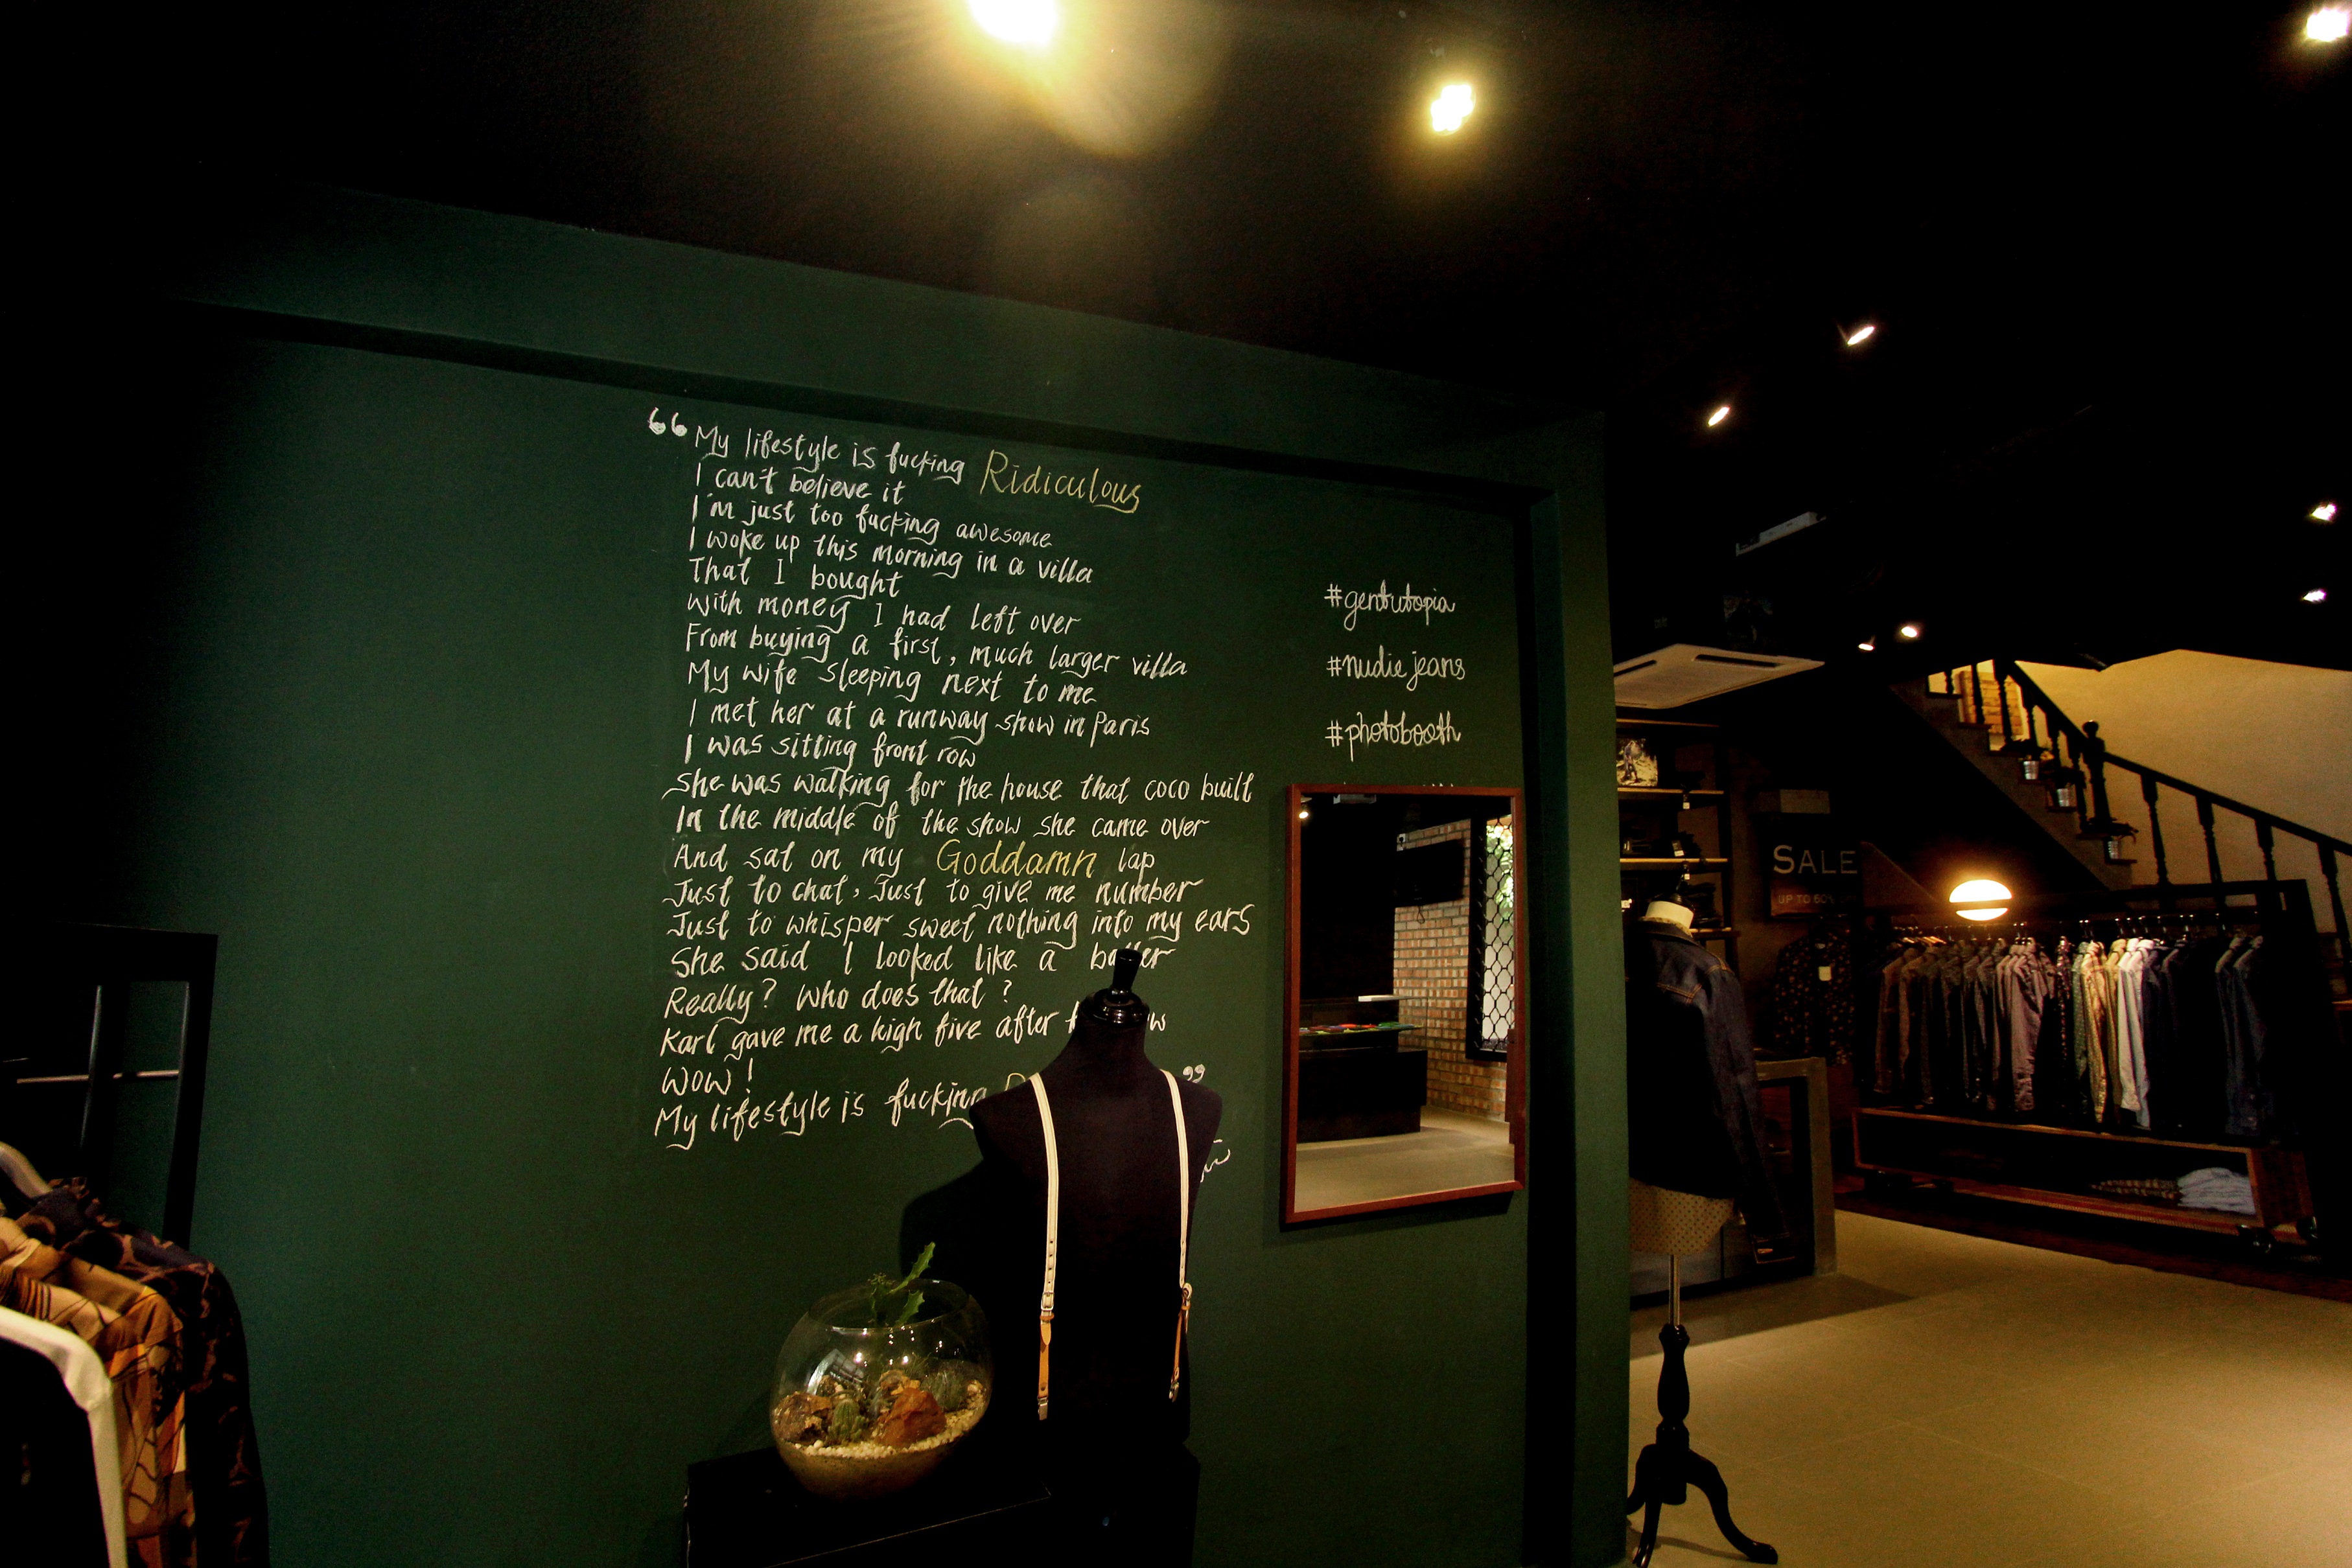 “ My lifestyle is fucking Ridiculous
I can't believe it
I'm just too fucking awesome
I woke up this morning in a villa
That I bought
With money I had left over
From buying a first, much larger villa
My wife sleeping next to me
I met her at a runway show in Paris
I was sitting front row
She was walking for the house that coco built
In the middle of the show she came over
And sat on my Goddamn lap
Just to chat, Just to give me number
Just to whisper sweet nothing into my ears
She said I looked like a
Really? Who does that?
Karl gave me a high five after
WOW!
My lifestyle is fucking ”
#gentutopia
#nudiejeans
#photobooth
SALE
UP TO 60%